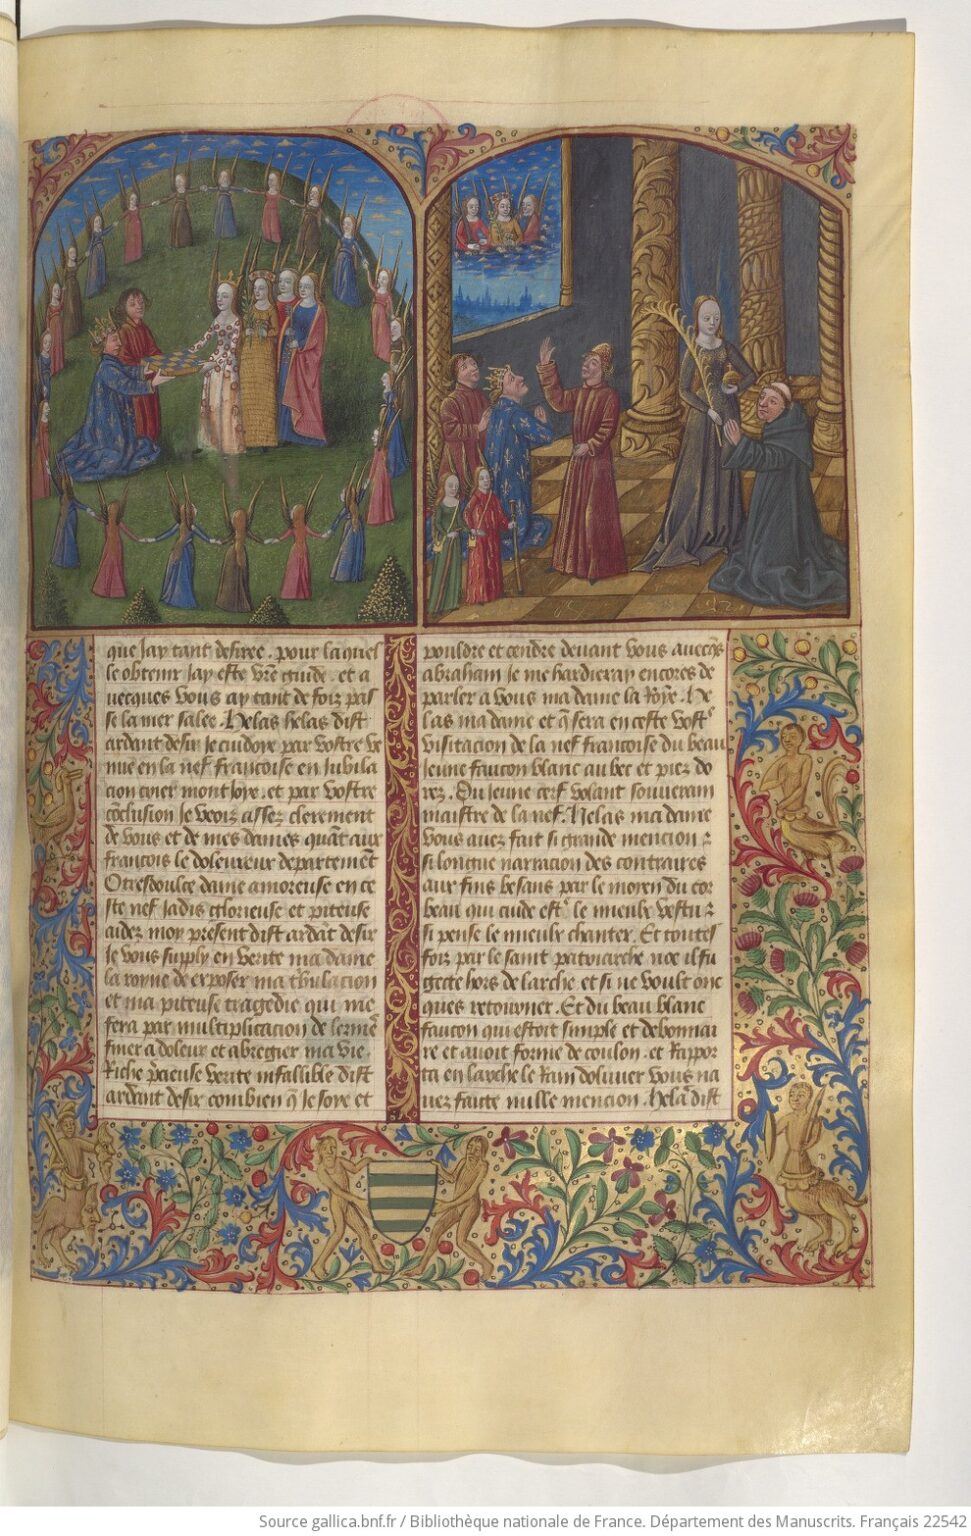 que jay tant desiree. pour laquel
le obtenir jay este vr̄e guide. et a
uecques vous ay tant de foiz pas
se la mer salee. Helas helas dist
ardant desir je cuidoye par vostre ve
nue en la nef francoise en jubila
cion crier montjoye. et par vostre
cōclusion je veoiz assez clerement
de vous et de mes dames quāt aux
francois le doleureux departemēt
O tresdoulce dame amoreuse en ce
ste nef jadis glorieuse et piteuse
aidez moy present dist ardāt desir
Je vous supply en verite ma dame
la royne de exposer ma t'bulacion
et ma piteuse tragedie qui me
fera par multiplicacion de lermes
finer a doleur et abregier ma vie.
Riche p̄cieuse verite infallible dist
ardant desir combien q̄ je soye et
pouldre et cendre deuant vous auecq̄s
abraham je me hardieray encores de
parler a vous ma dame la royne. He
las ma dame et q̄ sera en ceste vost'
visitacion de la nef francoise du beau
jeune faucon blanc au bec et piez do
rez. Du jeune cerf volant souuerain
maistre de la nef. Helas ma dame
vous auez fait si grande mencion ⁊
si longue narracion des contraires
aux fins besans par le moyen du cor
beau qui cuide est' le mieulx vestu ⁊
si pense le mieulx chanter. Et toutes
foiz par le saint patriarche noe il fu
gecte hors de larche et si ne voult onc
ques retourner. Et du beau blanc
faucon qui estoit simple et debonnai
re et auoit forme de coulon. et rappor
ta en larche le rain doliuier vous na
uez faicte nulle mencion. Hela' dist
Source gallica.bnf.fr / Bibliothèque nationale de France. Département des Manuscrits. Français 22542